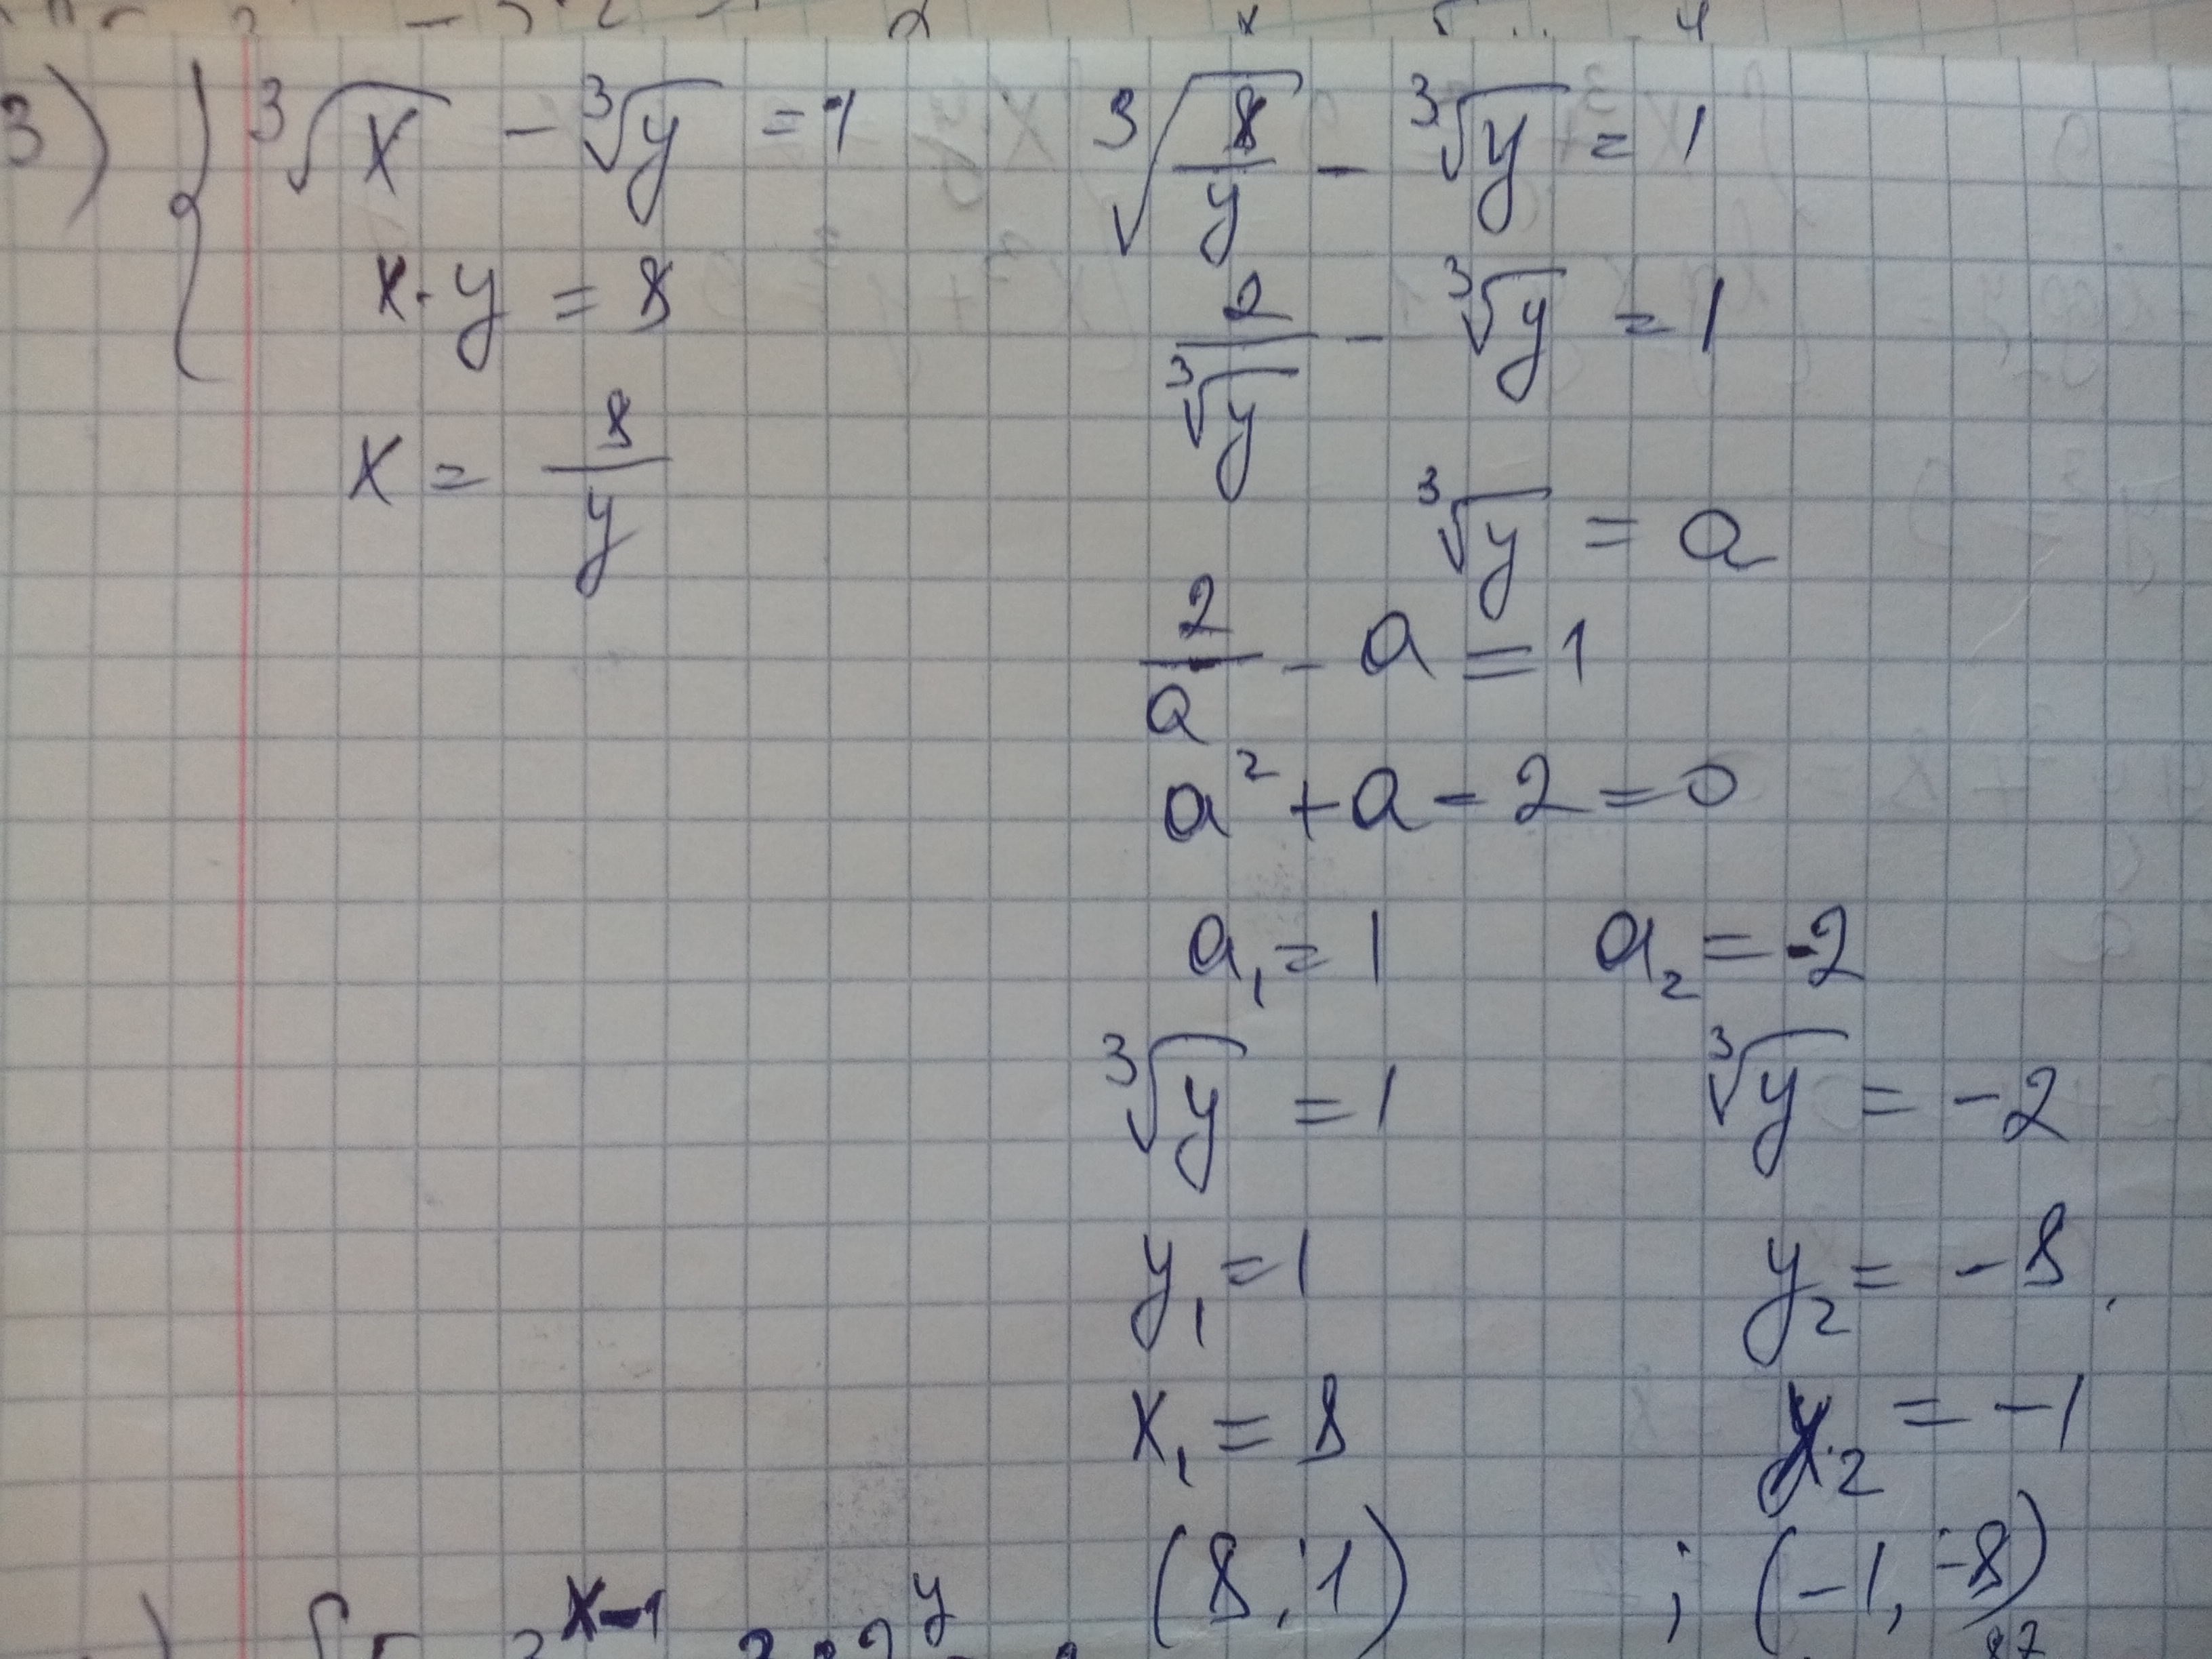 3) { ∛x - ∛y = 1
x · y = 8
x = 8/y
∛(8/y) - ∛y = 1
2/∛y - ∛y = 1
∛y = a
2/a - a = 1
a² + a - 2 = 0
a₁ = 1 a₂ = -2
∛y = 1 ∛y = -2
y₁ = 1 y₂ = -8
x₁ = 8 x₂ = -1
(8, 1) ; (-1, -8)